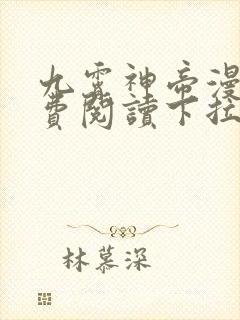 九霄神帝漫
費閱讀下拉
林慕深